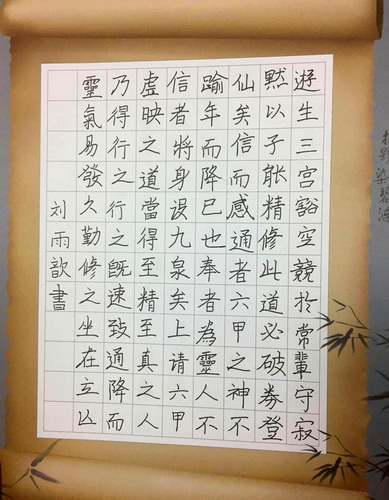 遊生三宫豁空競扵常輩守寂
黙以子能精修此道必破券登
仙矣信而感通者六甲之神不
踰年而降已也奉者為靈人不
信者將身没九泉矣上请六甲
虚映之道當得至精至真之人
乃得行之行之既速致通降而
靈氣易發久勤修之坐在立亾
刘雨歆書